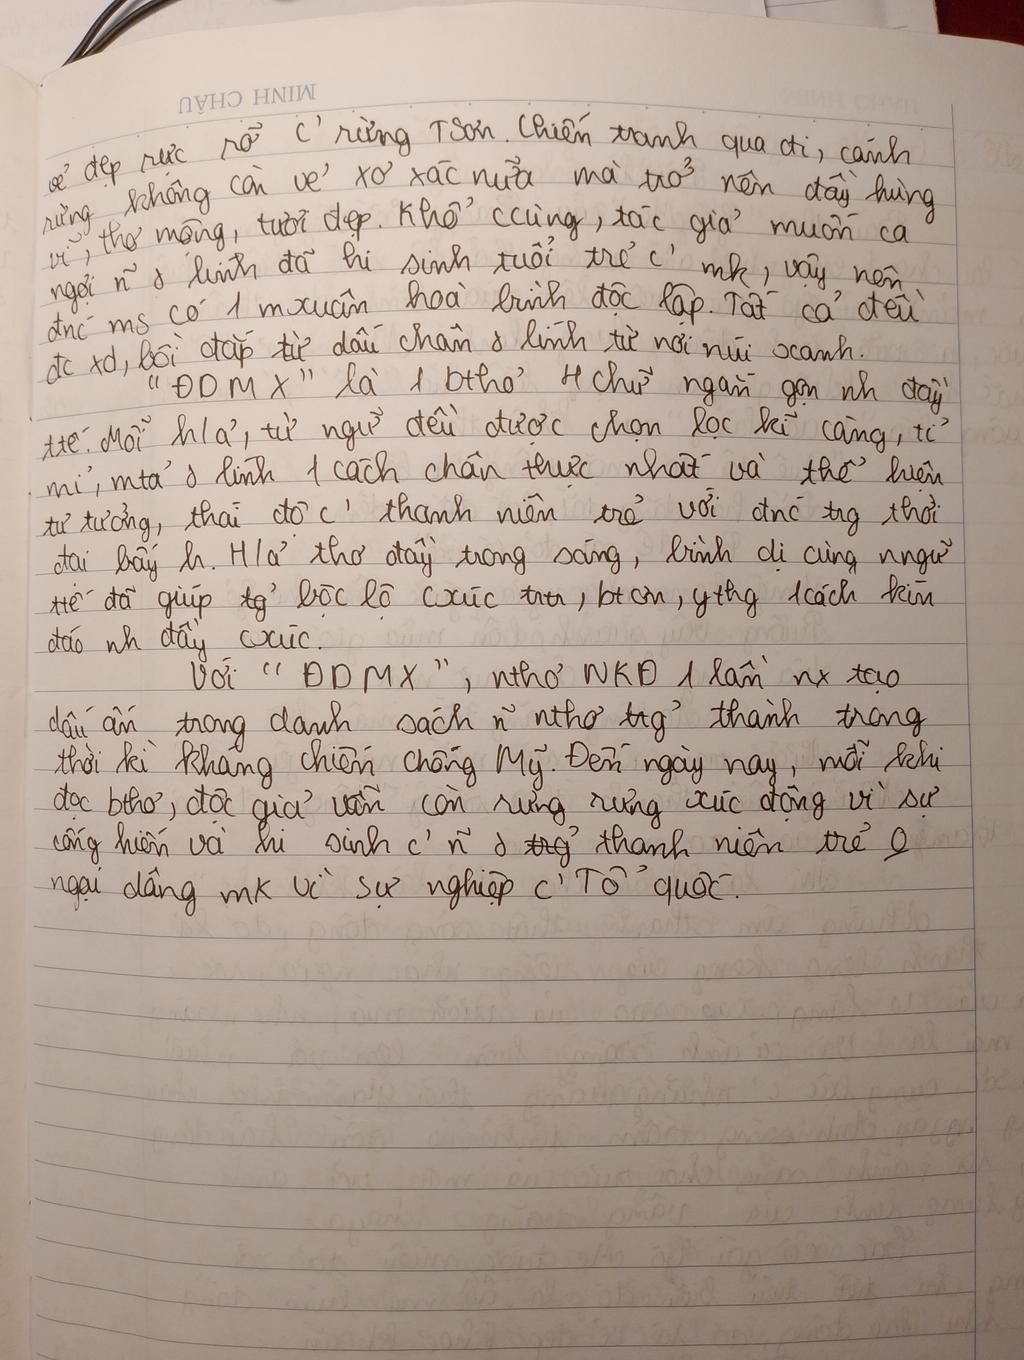 MINH CHÂU
vẻ đẹp rực rỡ c' rừng TSơn. Chiến tranh qua đi, cánh
rừng không còn vẻ xơ xác nữa mà trở nên đầy hùng
vĩ, thơ mộng, tươi đẹp. Khổ ccùng, tác giả muốn ca
ngợi ñ ng lính đã hi sinh tuổi trẻ c' mk, vậy nên
đnc ms có 1 mxuân hoà bình độc lập. Tất cả đều
đc xd, bồi đắp từ dấu chân ng lính từ nơi núi xanh.
"ĐDMX" là 1 bthơ 4 chữ ngắn gọn nh đầy
ttế. Mỗi h/ả, từ ngữ đều được chọn lọc kĩ càng, tỉ
mỉ, mtả ng lính 1 cách chân thực nhất và thể hiện
tư tưởng, thái độ c' thanh niên trẻ với đnc trg thời
đại bấy h. H/ả thơ đầy trong sáng, bình dị cùng nngữ
ttế đã giúp tg' bộc lộ cxúc ttn, bt cn, ythg 1 cách kín
đáo nh đầy cxúc.
Với "ĐDMX", nthơ NKĐ 1 lần nx tạo
dấu ấn trong danh sách ñ nthơ trg' thành trong
thời kì kháng chiến chống Mỹ. Đến ngày nay, mỗi khi
đọc bthơ, độc giả vẫn còn rưng rưng xúc động vì sự
cống hiến và hi sinh c' ñ ng thanh niên trẻ 0
ngại dâng mk vì sự nghiệp c' Tổ quốc.